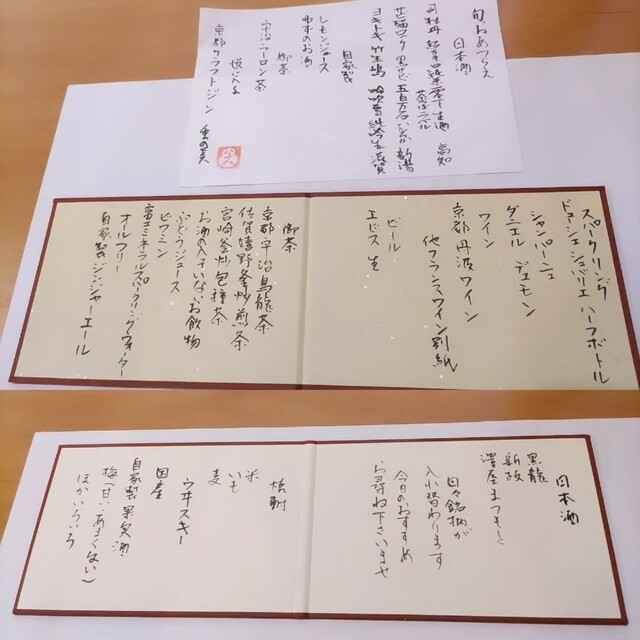 旬のおあつらえ
日本酒
司牡丹 純米零下生酒 高知
茶ばラベル
五百万石 新潟
竹生嶋 吟吹雪純吟生 滋賀
自家製
レモンジュース
ゆずのお酒
御茶
宇治ウーロン茶
京都クラフトジン 季の美
スパークリング
ドューシェ シュバリエ ハーフボトル
シャンパーニュ
ダニエル デュモン
ワイン
京都 丹波ワイン
他フランスワイン別紙
ビール
エビス 生
御茶
京都宇治烏龍茶
佐賀嬉野釜炒煎茶
宮崎釜炒包種茶
お酒の入ていないお飲物
ぶどうジュース
ビワミン
富士ミネラルスパークリングウォーター
オルフリー
自家製ジンジャーエール
日本酒
黒龍
新政
澤屋まつもと
日々銘柄が
入れ替わります
今日のおすすめ
お尋ね下さいませ
焼酎
米
いも
麦
ウヰスキー
国産
自家製果実酒
梅(甘い、あまくない)
ほかいろいろ